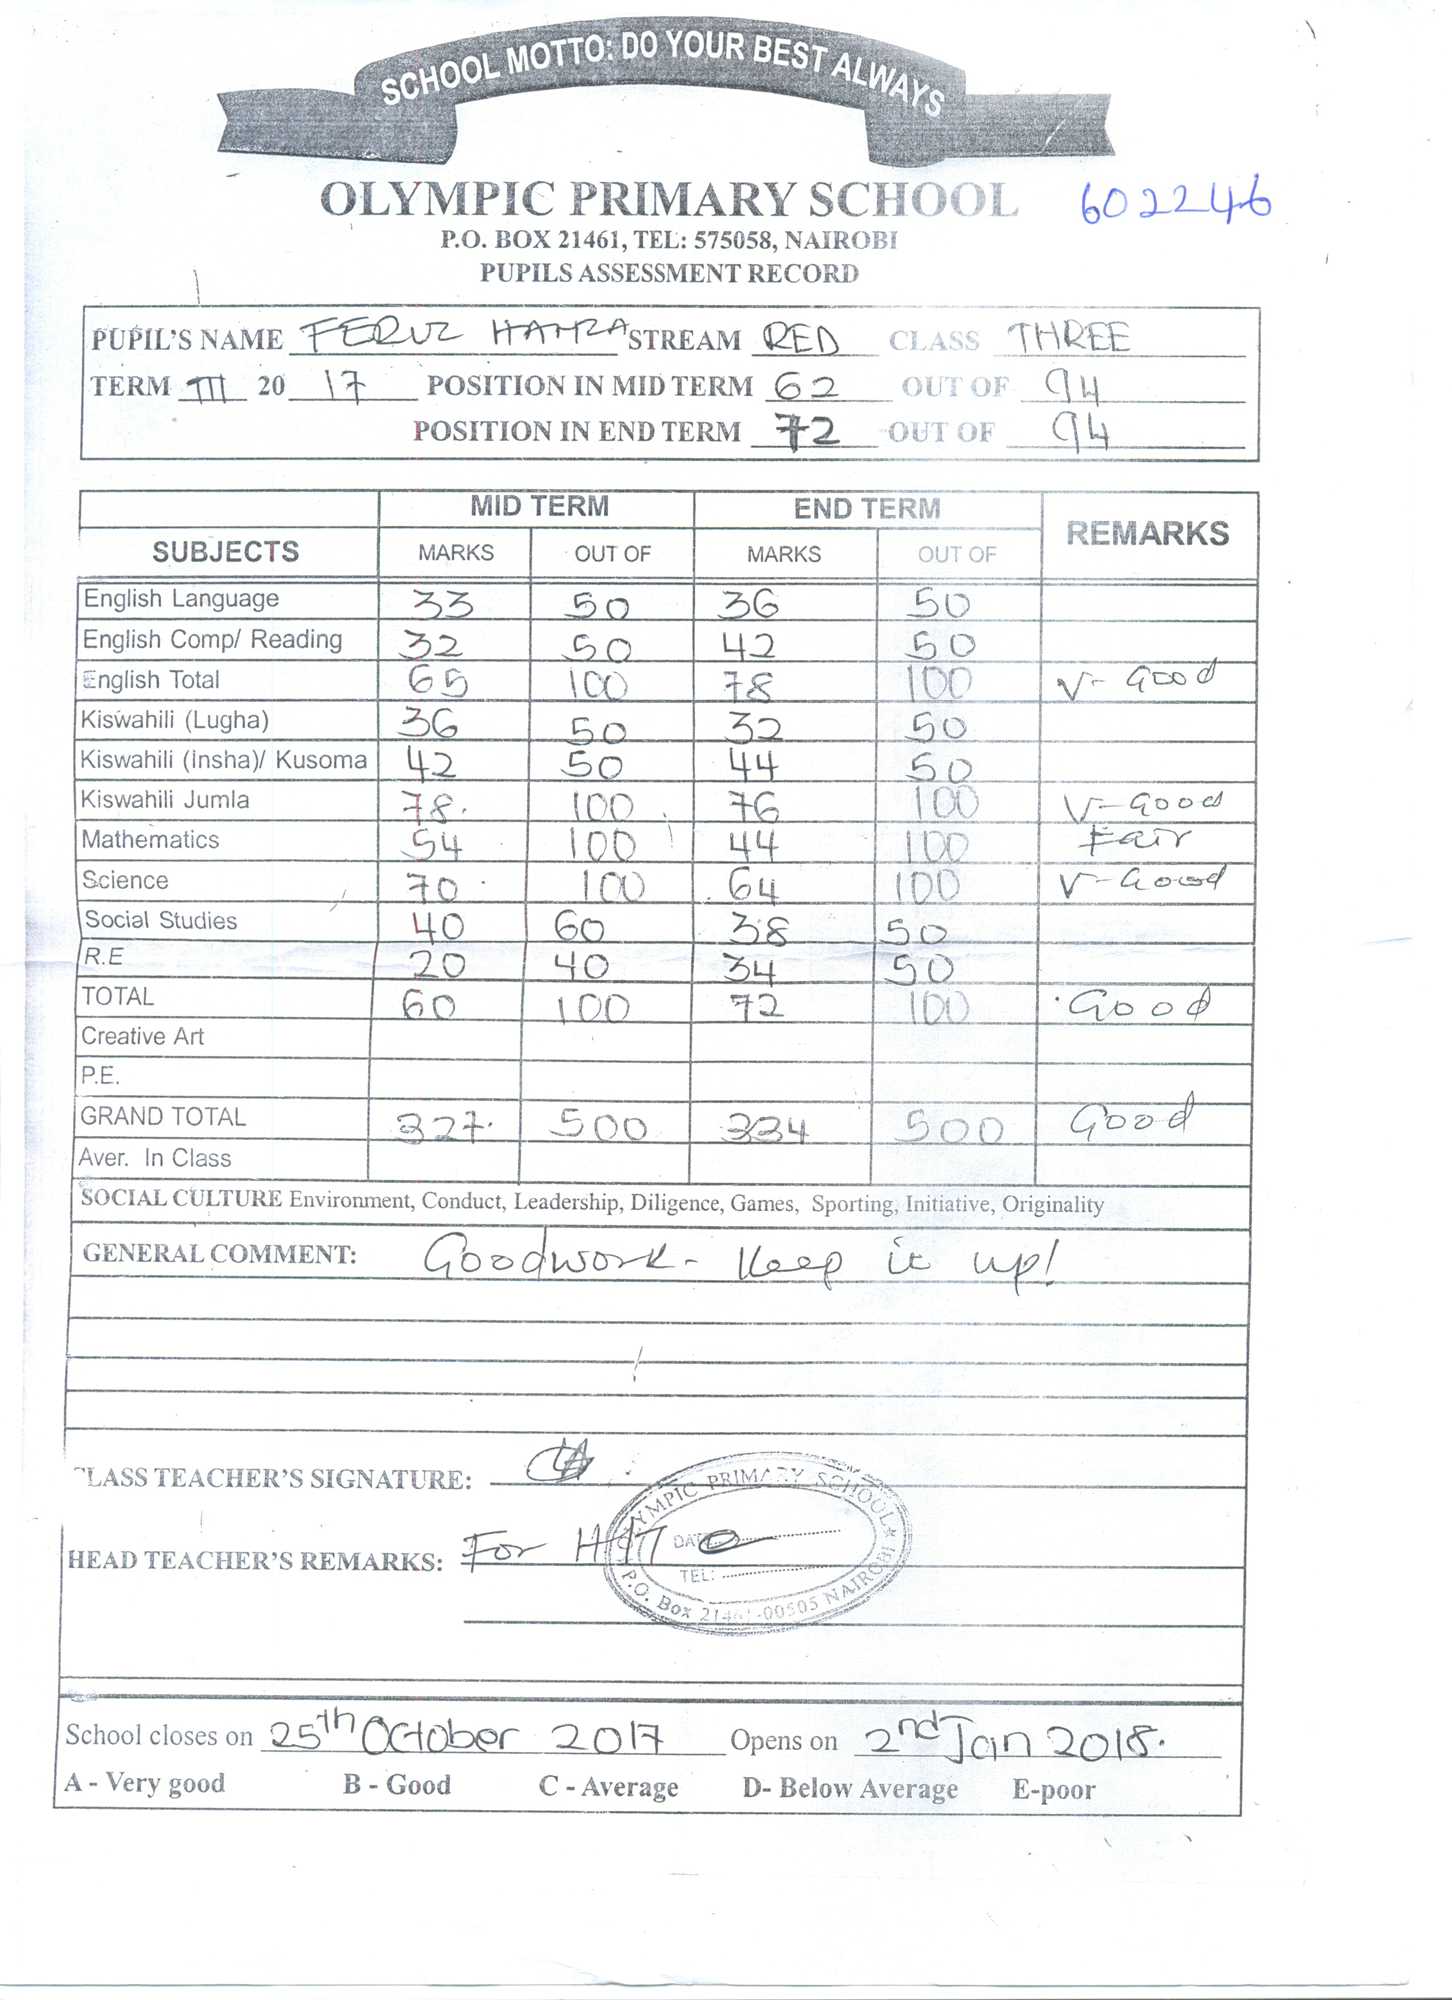 SCHOOL MOTTO: DO YOUR BEST ALWAYS
OLYMPIC PRIMARY SCHOOL 602246
P.O. BOX 21461, TEL: 575058, NAIROBI
PUPILS ASSESSMENT RECORD
PUPIL'S NAME FERUZ HAMZA STREAM RED CLASS THREE
TERM III 20 17 POSITION IN MID TERM 62 OUT OF 94
POSITION IN END TERM 72 OUT OF 94
MID TERM END TERM REMARKS
SUBJECTS MARKS OUT OF MARKS OUT OF
English Language 33 50 36 50
English Comp/ Reading 32 50 42 50
English Total 65 100 78 100 V-Good
Kiswahili (Lugha) 36 50 32 50
Kiswahili (Insha)/ Kusoma 42 50 44 50
Kiswahili Jumla 78 100 76 100 V-Good
Mathematics 54 100 44 100 Fair
Science 70 100 64 100 V-Good
Social Studies 40 60 38 50
R.E 20 40 34 50
TOTAL 60 100 72 100 Good
Creative Art
P.E.
GRAND TOTAL 327 500 334 500 Good
Aver. In Class
SOCIAL CULTURE Environment, Conduct, Leadership, Diligence, Games, Sporting, Initiative, Originality
GENERAL COMMENT: Goodwork- Keep it up!
CLASS TEACHER'S SIGNATURE:
HEAD TEACHER'S REMARKS: For H/T
OLYMPIC PRIMARY SCHOOL
DATE
TEL:
P.O. Box 21461-00505 NAIROBI
School closes on 25th October 2017 Opens on 2nd Jan 2018.
A - Very good B - Good C - Average D- Below Average E-poor